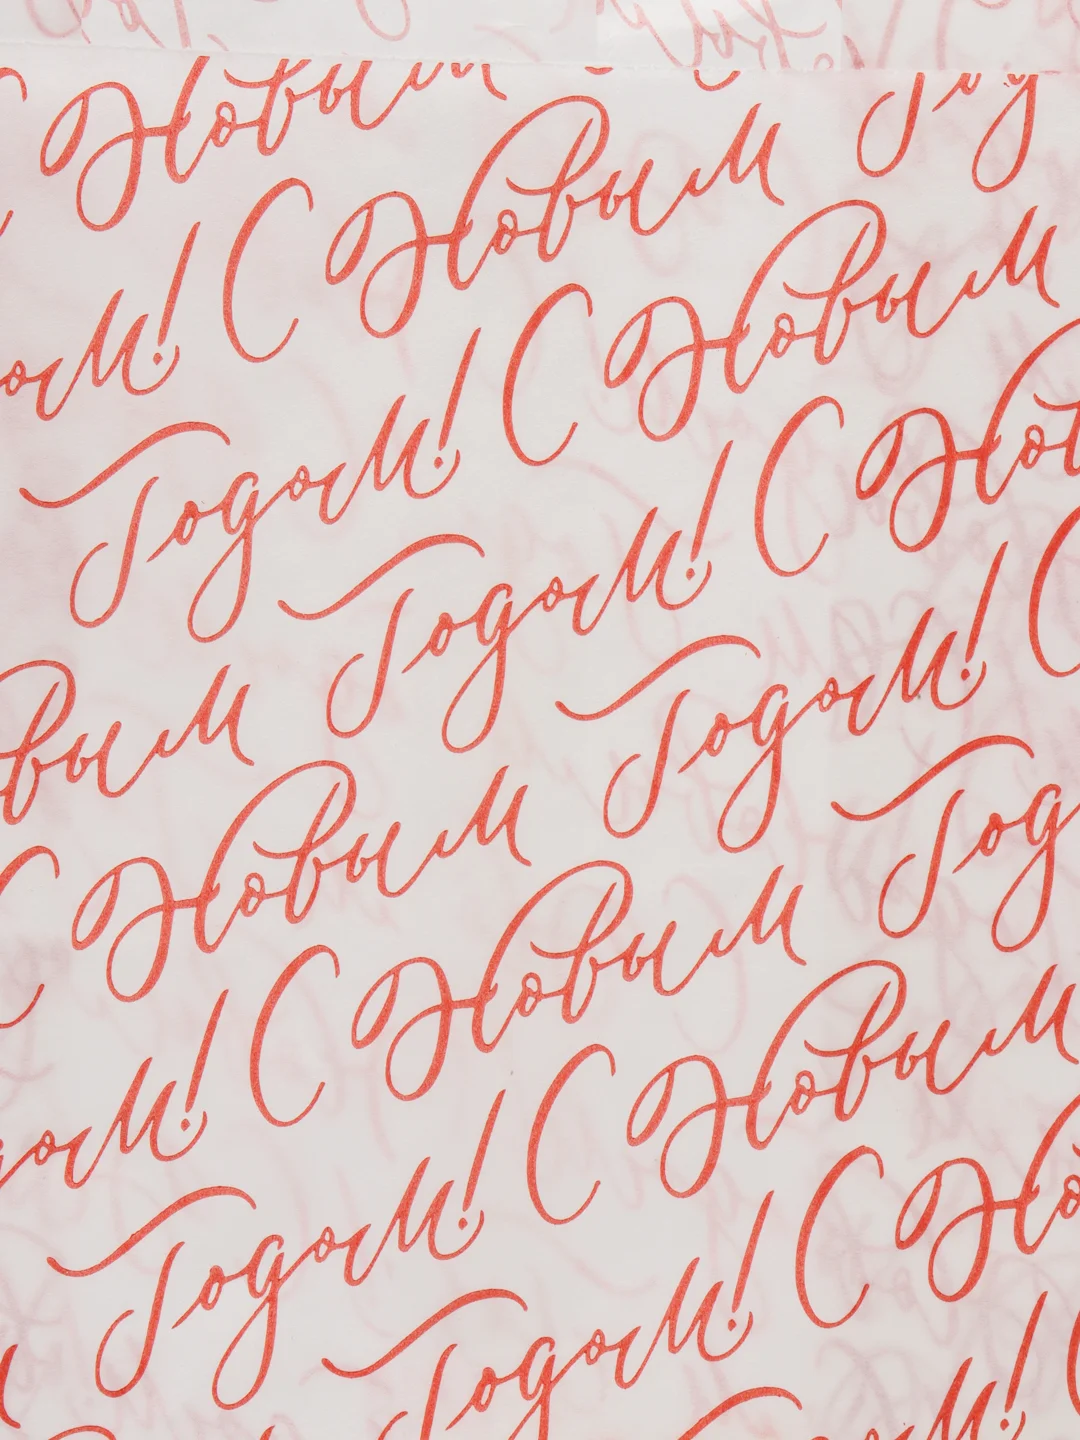 Новым
ом! С Новым Год
Годом! С Новым
вым Годом! С Нов
С Новым Годом! С
одом! С Новым Год
Годом! С Новым
Годом! С Но
ом!